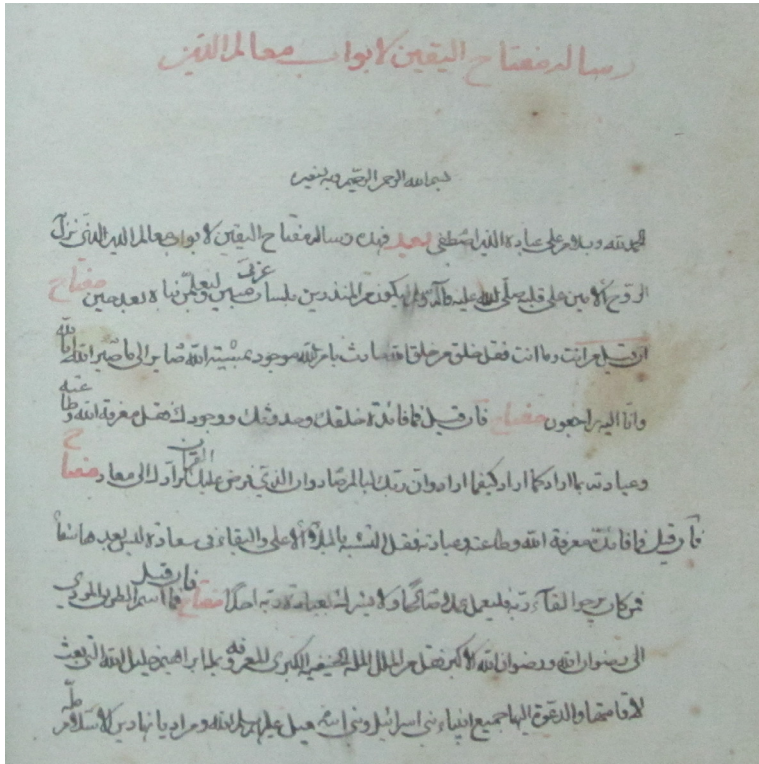 رساله مفتاح اليقين لابواب معالم الدين
بسم الله الرحمن الرحيم وبه نستعين
الحمد لله وسلام على عباده الذين اصطفى بعد فهذه رساله مفتاح اليقين لابواب معالم الدين الذي نزل
الروح الأمين على قلبه صلى الله عليه وآله وسلم ليكون من المنذرين بلسان عربي مبين وليعلمن نباه بعد حين مفتاح
ان قيل من انت وما انت فقل خلق من خلق الله حادث بامر الله موجود بمشيته الله صاير الى ما صيره الله انا لله
وانا اليه راجعون مفتاح فان قيل فما فائدة خلقك وحدوثك ووجودك فقل معرفة الله وطاعته
وعبادته بما اراد كما اراد كيفما اراد وان ربك لبالمرصاد وان الذي فرض عليك القران لرادك الى معاد مفتاح
فان قيل فما فائدة معرفة الله وطاعته وعبادته فقل التشبه بالملاء الأعلى والبقاء في سعادة ليس بعدها شقا
فمن كان يرجو لقاء ربه فليعمل عملا صالحا ولا يشرك بعبادة ربه احدا مفتاح فان قيل فما اسم الطريق المودي
الى رضوان الله ورضوان الله الاكبر فقل من الملل الملة الحنيفية الكبرى المعروفة بملة ابراهيم خليل الله التي بعث
لاقامتها والدعوة اليها جميع انبياء بني اسرائيل وبني اسمعيل عليهم سلم الله ومن اديانها دين الاسلام